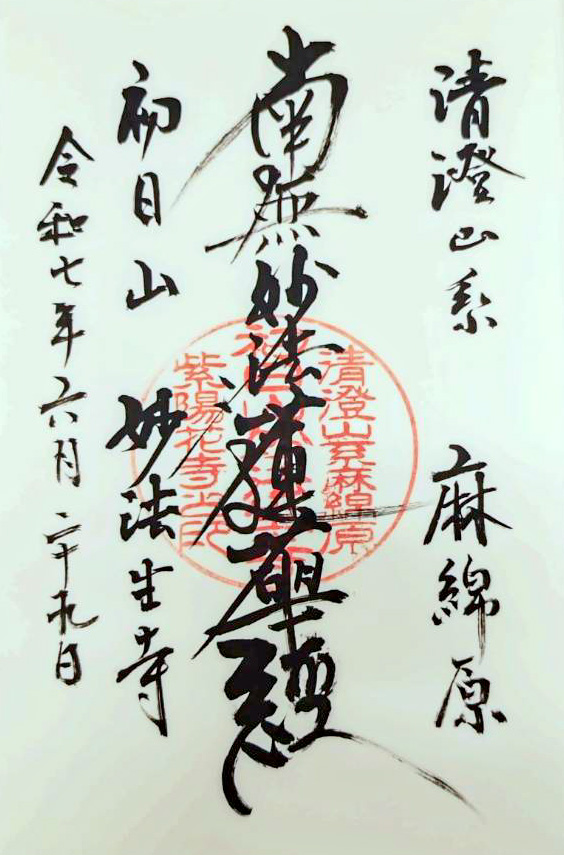 清澄山系 麻綿原
南無妙法蓮華經
初日山 妙法生寺
令和七年六月二十九日
清澄山系麻綿原
紫陽花寺之印